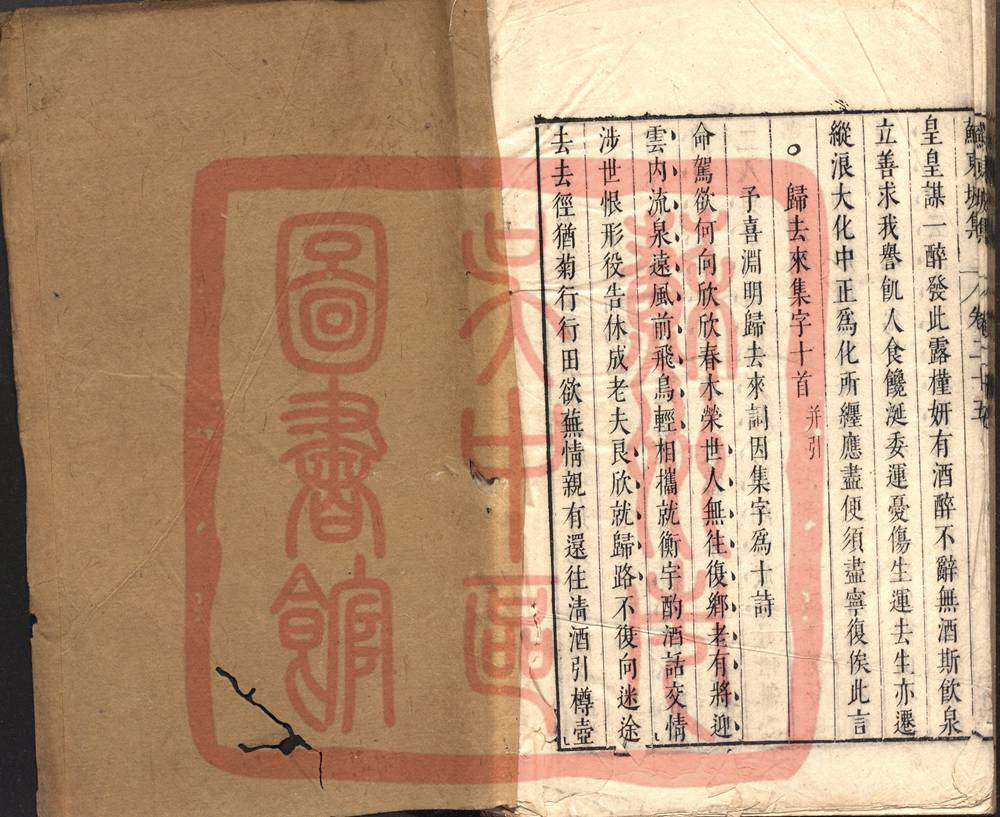 蘇東坡集　卷二十五
皇皇謀一醉發此露槿妍有酒醉不辭無酒斯飲泉
立善求我譽飢人食饞涎委運憂傷生運去生亦遷
縱浪大化中正爲化所纏應盡便須盡寧復俟此言
歸去來集字十首 并引
予喜淵明歸去來詞因集字爲十詩
命駕欲何向欣欣春木榮世人無往復鄉老有將迎
雲內流泉遠風前飛鳥輕相攜就衡宇酌酒話交情
涉世恨形役告休成老夫良欣就歸路不復向迷途
去去徑猶菊行行田欲蕪情親有還往清酒引樽壺
圖書館